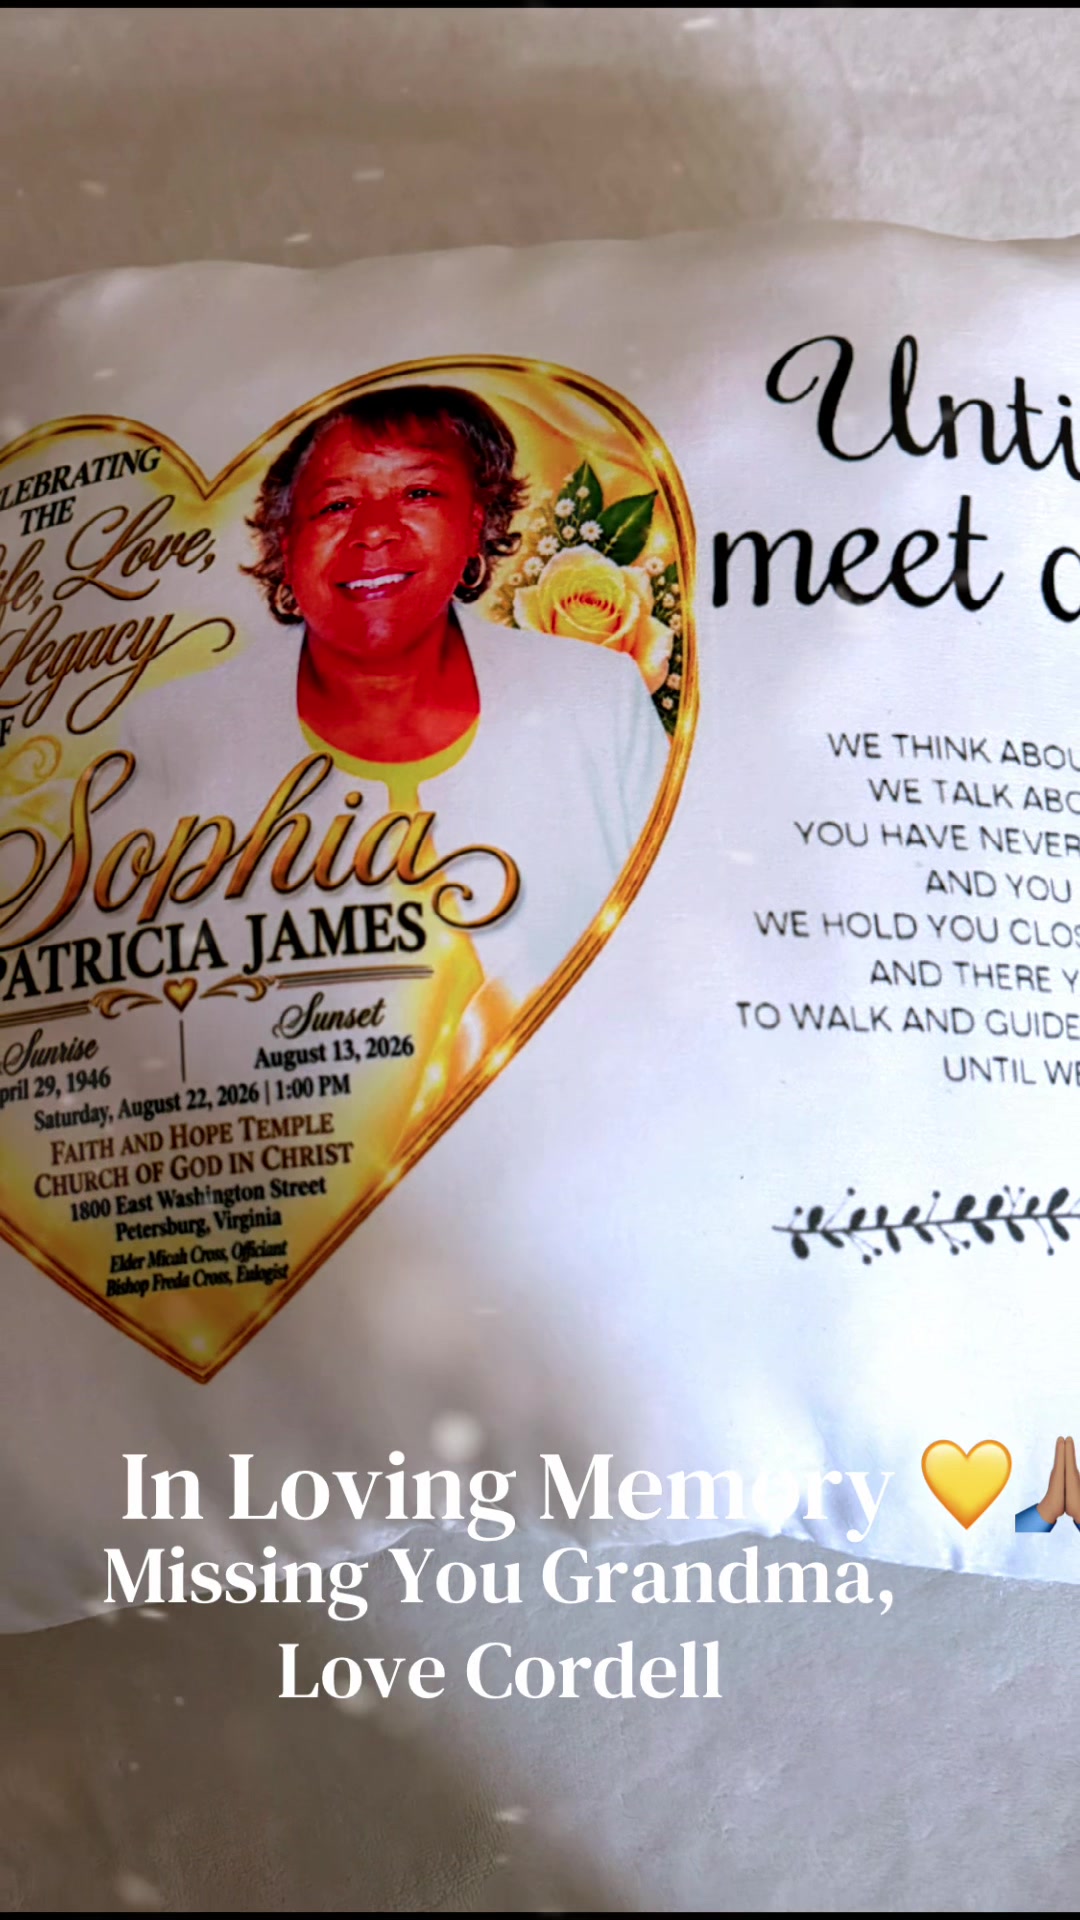 CELEBRATING
THE
Life, Love,
Legacy
OF
Sophia
PATRICIA JAMES
Sunrise
April 29, 1946
Sunset
August 13, 2026
Saturday, August 22, 2026 | 1:00 PM
FAITH AND HOPE TEMPLE
CHURCH OF GOD IN CHRIST
1800 East Washington Street
Petersburg, Virginia
Elder Micah Cross, Officiant
Bishop Freda Cross, Eulogist
Until
meet
WE THINK ABOU
WE TALK ABO
YOU HAVE NEVER
AND YOU
WE HOLD YOU CLOS
AND THERE Y
TO WALK AND GUIDE
UNTIL WE
In Loving Memory 💛🙏🏽
Missing You Grandma,
Love Cordell